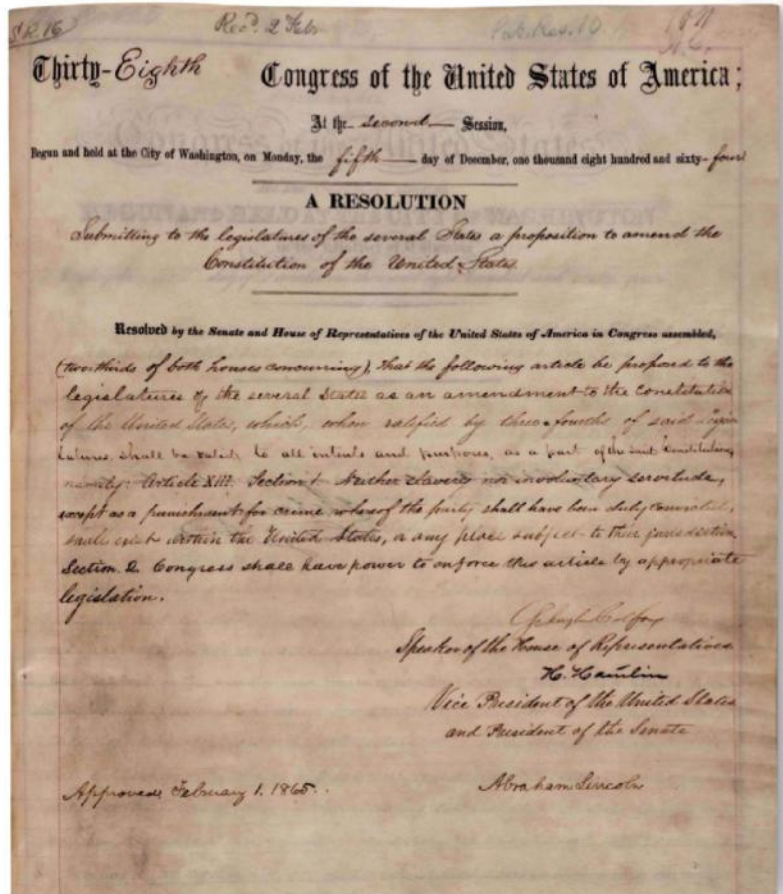 S.R. 16
Rec'd. 2 Feby
Pub. Res. 10.
Thirty-Eighth Congress of the United States of America;
At the second Session,
Begun and held at the City of Washington, on Monday, the fifth day of December, one thousand eight hundred and sixty-four
A RESOLUTION
Submitting to the legislatures of the several States a proposition to amend the
Constitution of the United States.
Resolved by the Senate and House of Representatives of the United States of America in Congress assembled,
(two-thirds of both houses concurring), that the following article be proposed to the
legislatures of the several States as an amendment to the Constitution
of the United States, which, when ratified by three-fourths of said Legis-
latures, shall be valid, to all intents and purposes, as a part of the said Constitution,
namely: Article XIII. Section 1. Neither slavery nor involuntary servitude,
except as a punishment for crime whereof the party shall have been duly convicted,
shall exist within the United States, or any place subject to their jurisdiction.
Section 2. Congress shall have power to enforce this article by appropriate
legislation.
Schuyler Colfax
Speaker of the House of Representatives.
H. Hamlin
Vice President of the United States
and President of the Senate
Approved, February 1. 1865.
Abraham Lincoln